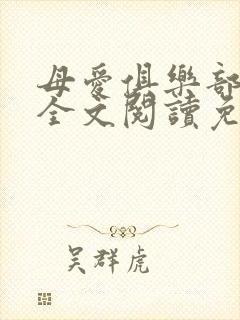 母愛俱樂部
全文閱讀免
吳群虎